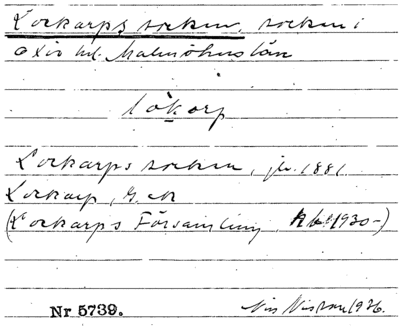 Lockarps socken, socken i
Oxie hd. Malmöhus län
lòkarp
Lockarps socken, jb. 1881
Lockarp, G. ek
(Lockarps Församling kbf 1930-)
Nr 5739. 1936.